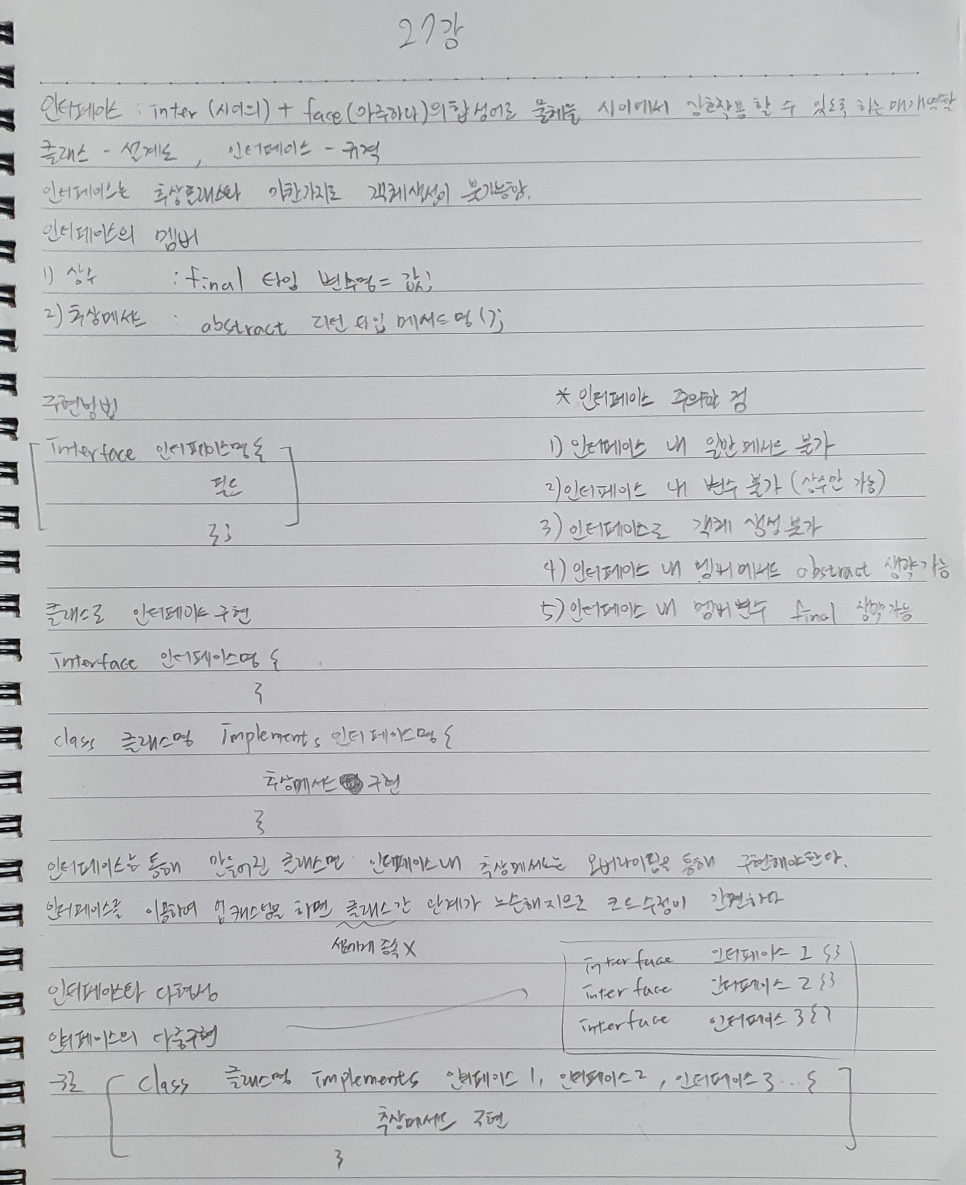 27강
인터페이스 : inter (사이의) + face(마주하다)의 합성어로 물체들 사이에서 상호작용 할 수 있도록 하는 매개역할
클래스 - 설계도 , 인터페이스 - 규격
인터페이스는 추상클래스와 마찬가지로 객체생성이 불가능함.
인터페이스의 멤버
1) 상수 : final 타입 변수명 = 값;
2) 추상메서드 : abstract 리턴 타입 메서드명 ();
구현방법
interface 인터페이스명 {
필드
};
* 인터페이스 주의할 점
1) 인터페이스 내 일반메서드 불가
2) 인터페이스 내 변수 불가 (상수만 가능)
3) 인터페이스로 객체 생성 불가
4) 인터페이스 내 멤버메서드 abstract 생략가능
5) 인터페이스 내 멤버변수 final 생략가능
클래스로 인터페이스 구현
interface 인터페이스명 {
}
class 클래스명 implements 인터페이스명 {
추상메서드 구현
}
인터페이스를 통해 만들어진 클래스면 인터페이스내 추상메서드는 오버라이딩을 통해 구현해야한다.
인터페이스를 이용하여 업캐스팅을 하면 클래스간 관계가 느슨해지므로 코드수정이 간편하다
종속 X
인터페이스와 다형성
인터페이스의 다중구현
interface 인터페이스 1 {}
interface 인터페이스 2 {}
interface 인터페이스 3 {}
구조
class 클래스명 implements 인터페이스 1, 인터페이스2, 인터페이스3 ... {
추상메서드 구현
}